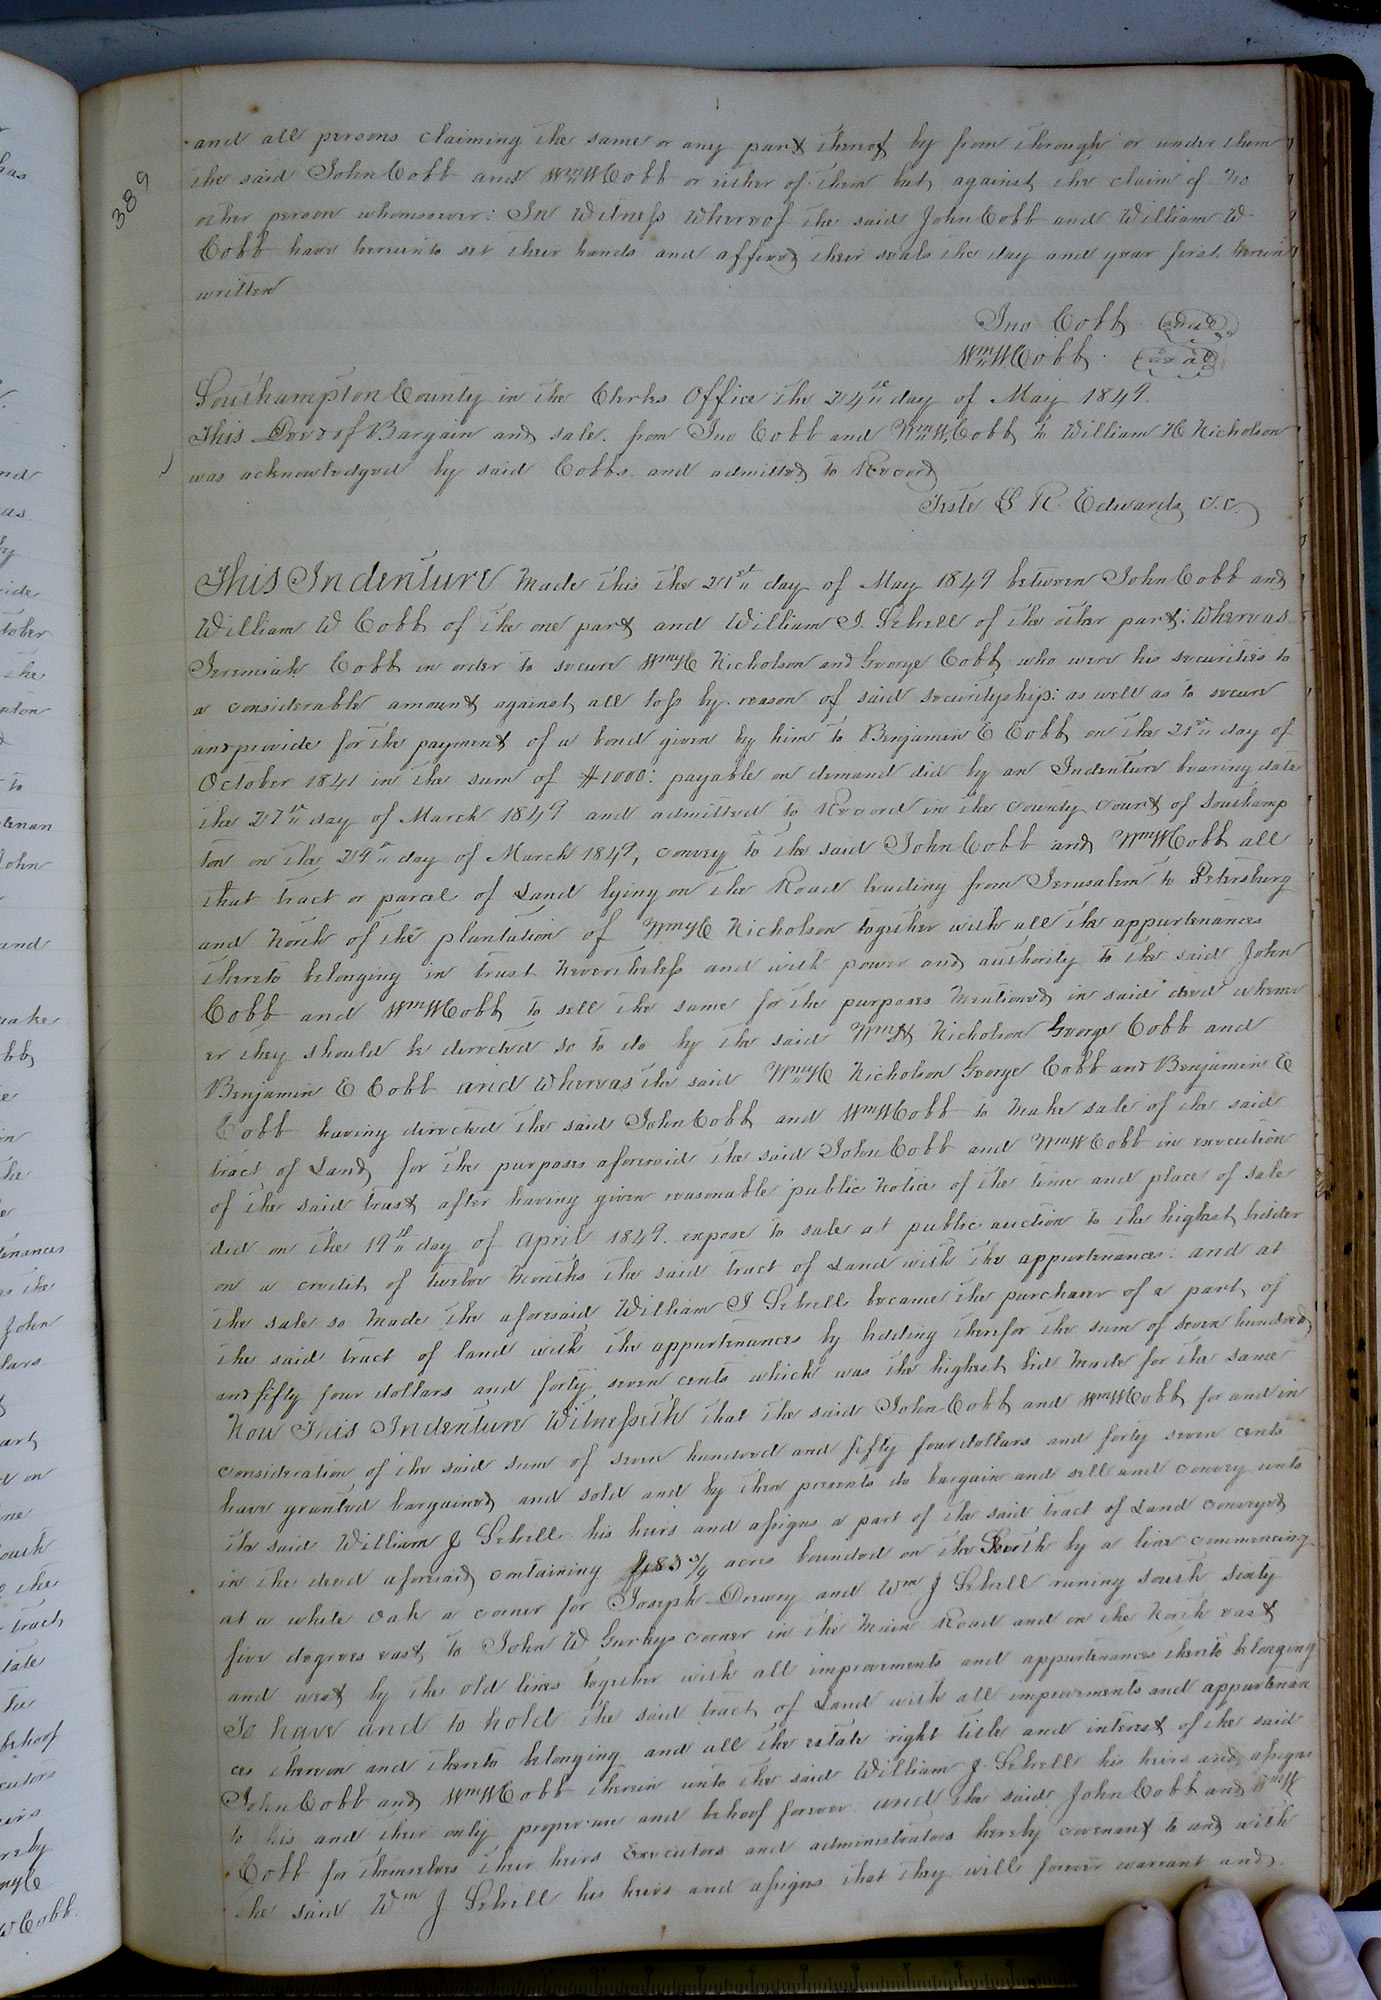 389
and all persons claiming the same or any part thereof by from through or under them
the said John Cobb and Wm W Cobb or either of them but against the claim of no
other person whomsoever: In Witness Whereof the said John Cobb and William W
Cobb have hereunto set their hands and affixed their seals the day and year first herein
written
Jno Cobb Seal
Wm W Cobb. Seal
Southampton County in the Clerks Office the 24th day of May 1849.
This Deed of Bargain and sale from Jno Cobb and Wm W Cobb to William H Nicholson
was acknowledged by said Cobbs and admitted to Record
Teste L R Edwards c.c.
This Indenture Made this the 21st day of May 1849 between John Cobb and
William W Cobb of the one part and William J. Sebrell of the other part: Whereas
Jeremiah Cobb in order to secure Wm H Nicholson and George Cobb who were his securities to
a considerable amount against all loss by reason of said securityship: as well as to secure
and provide for the payment of a bond given by him to Benjamin E Cobb on the 21st day of
October 1841 in the sum of $1000: payable on demand did by an Indenture bearing date
the 27th day of March 1849 and admitted to Record in the county court of Southamp
ton on the 29th day of March 1849, convey to the said John Cobb and Wm W Cobb all
that tract or parcel of Land lying on the Road leading from Jerusalem to Petersburg
and North of the plantation of Wm H Nicholson together with all the appurtenances
thereto belonging in trust Nevertheless and with power and authority to the said John
Cobb and Wm W Cobb to sell the same for the purposes Mentioned in said deed whenev
er they should be directed so to do by the said Wm H Nicholson George Cobb and
Benjamin E Cobb and Whereas the said Wm H Nicholson George Cobb and Benjamin E
Cobb having directed the said John Cobb and Wm W Cobb to Make sale of the said
tract of Land for the purposes aforesaid the said John Cobb and Wm W Cobb in execution
of the said trust after having given reasonable public Notice of the time and place of sale
did on the 19th day of April 1849. expose to sale at public auction to the highest bidder
on a credit of twelve Months the said tract of Land with the appurtenances. and at
the sale so Made the aforesaid William J Sebrell became the purchaser of a part of
the said tract of land with the appurtenances by bidding therefor the sum of seven hundred
and fifty four dollars and forty seven cents which was the highest bid Made for the same
Now This Indenture Witnesseth that the said John Cobb and Wm W Cobb for and in
consideration of the said sum of seven hundred and fifty four dollars and forty seven cents
have granted bargained and sold and by these presents do bargain and sell and convey unto
the said William J Sebrell his heirs and assigns a part of the said tract of Land conveyed
in the deed aforesaid containing 183 3/4 acres bounded on the South by a line commencing
at a white oak a corner for Joseph Drewry and Wm J Sebrell runing south sixty
five degrees east to John W Gurleys corner in the Main Road and on the North east
and west by the old lines together with all improvements and appurtenances thereto belonging
To have and to hold the said tract of Land with all improvements and appurtenan
ces thereon and thereto belonging and all the estate right title and interest of the said
John Cobb and Wm W Cobb therein unto the said William J Sebrell his heirs and assigns
to his and their only proper use and behoof forever and the said John Cobb and Wm W
Cobb for themselves their heirs Executors and administrators hereby covenant to and with
the said Wm J Sebrell his heirs and assigns that they will forever warrant and